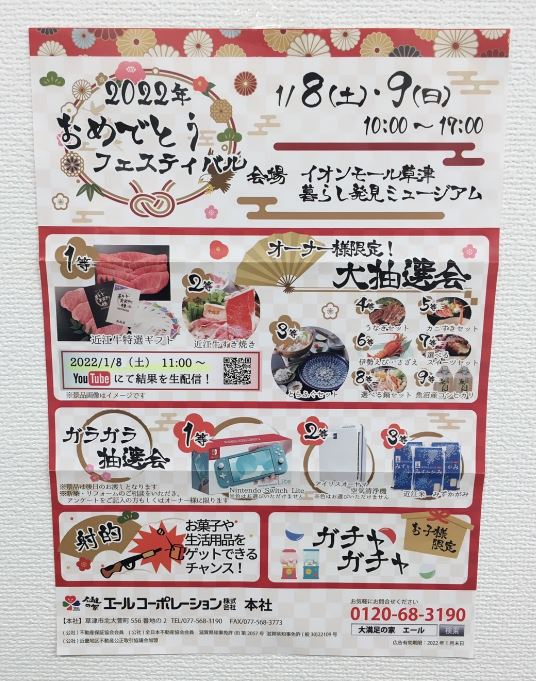 2022年
おめでとう
フェスティバル
1/8(土)・9(日)
10:00～17:00
会場 イオンモール草津
暮らし発見ミュージアム
オーナー様限定!
大抽選会
1等
近江牛特選ギフト
2等
近江牛すき焼き
3等
とらふぐセット
4等
うなぎセット
5等
カニすきセット
6等
伊勢えび・さざえ
7等
選べる
スイーツセット
8等
選べる鍋セット
9等
魚沼産コシヒカリ
2022/1/8（土）11:00～
YouTube にて結果を生配信！
※景品画像はイメージです
ガラガラ
抽選会
※景品は後日のお渡しとなります
※新築・リフォームのご相談をいただき、
アンケートをご記入の方もしくはオーナー様に限ります
1等
Nintendo Switch Lite
※色はお選びいただけません
2等
アイリスオーヤマ
空気清浄機
※色はお選びいただけません
3等
近江米 みずかがみ
射的
お菓子や
生活用品を
ゲットできる
チャンス！
ガチャ
ガチャ
お子様
限定
エールコーポレーション 株式会社 本社
[本社] 草津市北大萱町 556 番地の 2 TEL/077-568-3190 FAX/077-568-3773
（公社）不動産保証協会会員 （公社）全日本不動産協会会員 滋賀県知事免許
（公社）近畿地区不動産公正取引協議会加盟
お気軽にお問合せください
0120-68-3190
大満足の家 エール 検索
広告有効期限：2022年1月末日